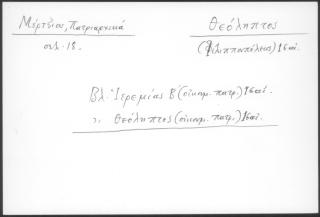 Μέρτζιος, Πατριαρχικά
σελ. 18.
Θεόληπτος
(Φιλιππουπόλεως) 16 αἰ.
Βλ. Ἱερεμίας Β΄ (οἰκουμ. πατρ.) 16 αἰ.
〃 Θεόληπτος (οἰκουμ. πατρ.) 16 αἰ.